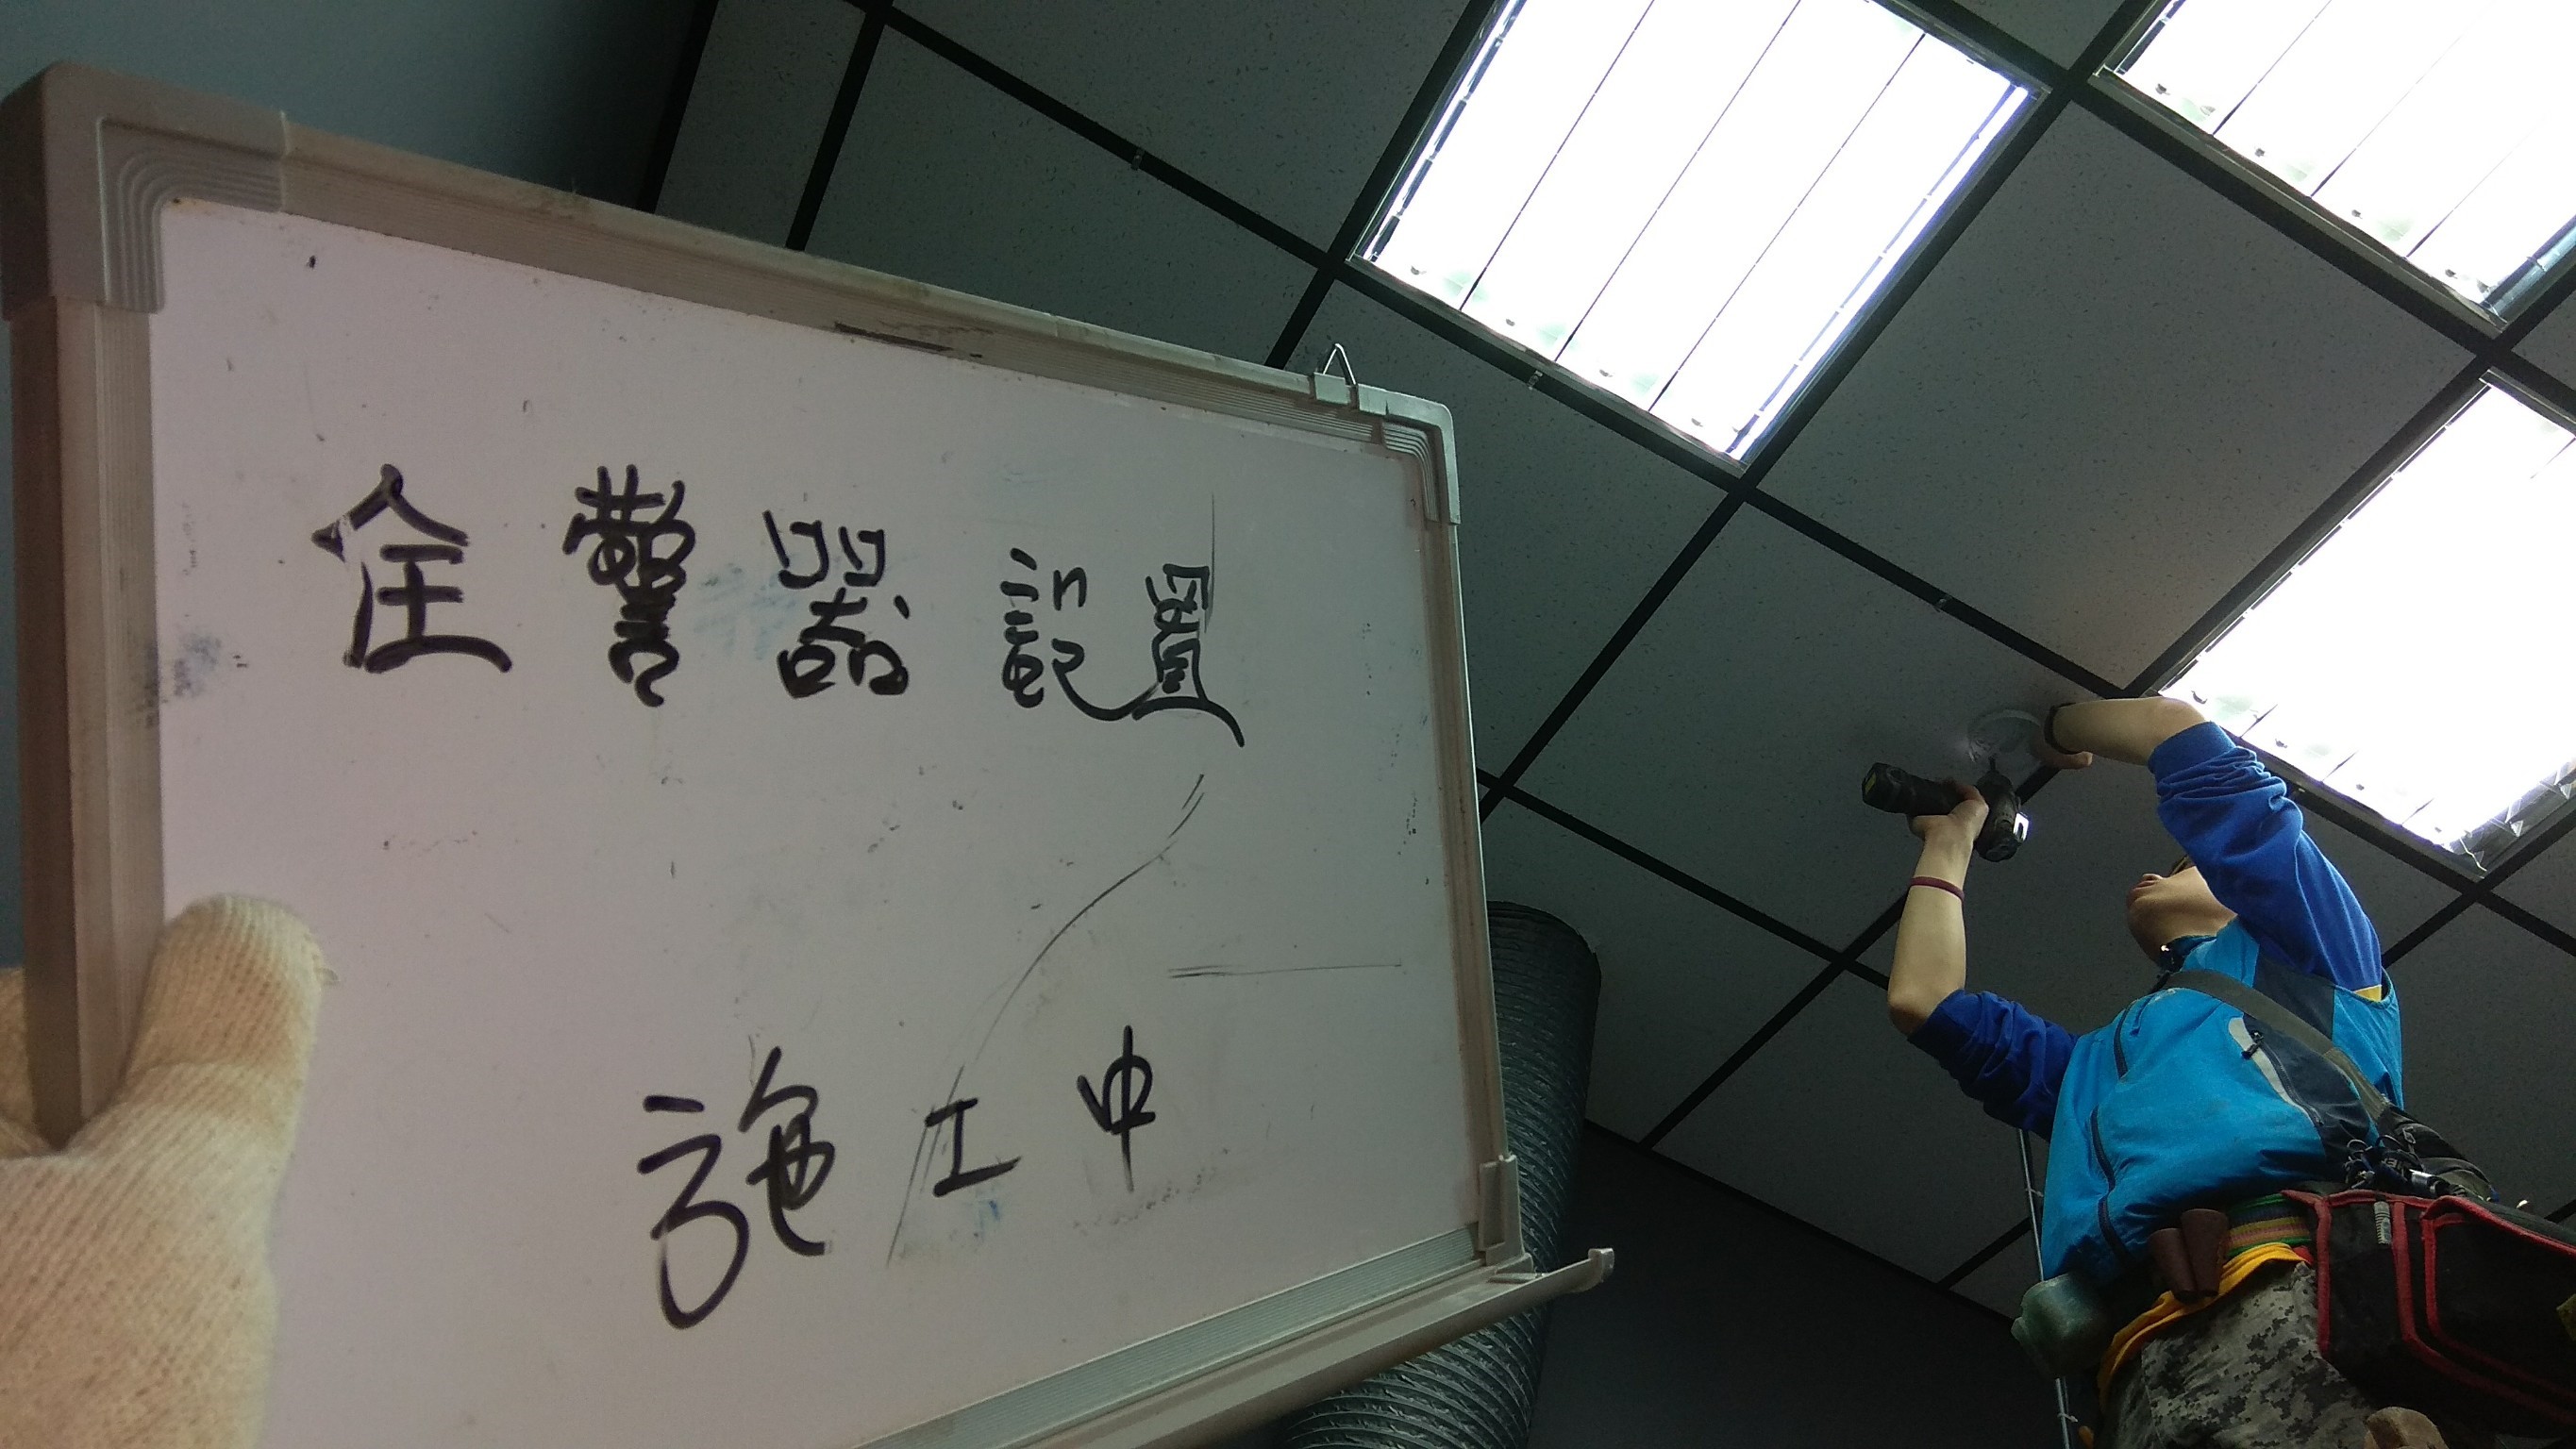 住警器設置
施工中